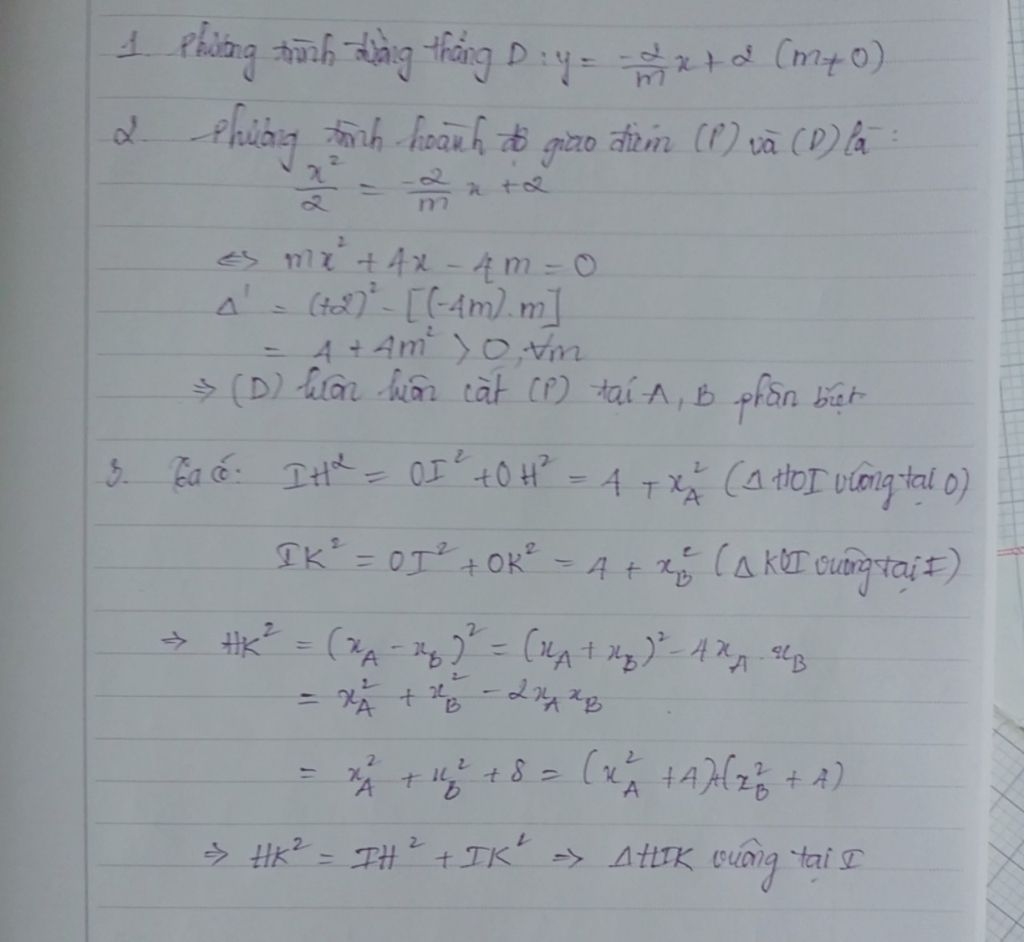 1. Phương trình đường thẳng D: y = -2/m x + 2 (m ≠ 0)
2. Phương trình hoành độ giao điểm (P) và (D) là:
x²/2 = -2/m x + 2
⇔ mx² + 4x - 4m = 0
Δ' = (+2)² - [(-4m).m]
= 4 + 4m² > 0, ∀m
⇒ (D) luôn luôn cắt (P) tại A, B phân biệt
3. Ta có: IH² = OI² + OH² = 4 + x_A² (Δ HOI vuông tại O)
IK² = OI² + OK² = 4 + x_B² (Δ KOI vuông tại I)
⇒ HK² = (x_A - x_B)² = (x_A + x_B)² - 4x_A.x_B
= x_A² + x_B² - 2x_A x_B
= x_A² + x_B² + 8 = (x_A² + 4)+(x_B² + 4)
⇒ HK² = IH² + IK² ⇒ ΔHIK vuông tại I